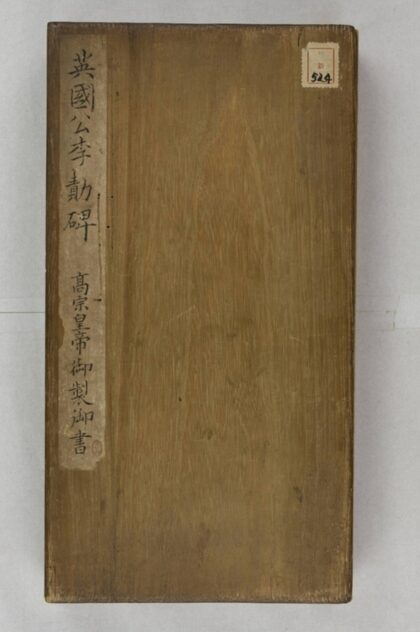 英國公李勣碑
高宗皇帝御製御書
524